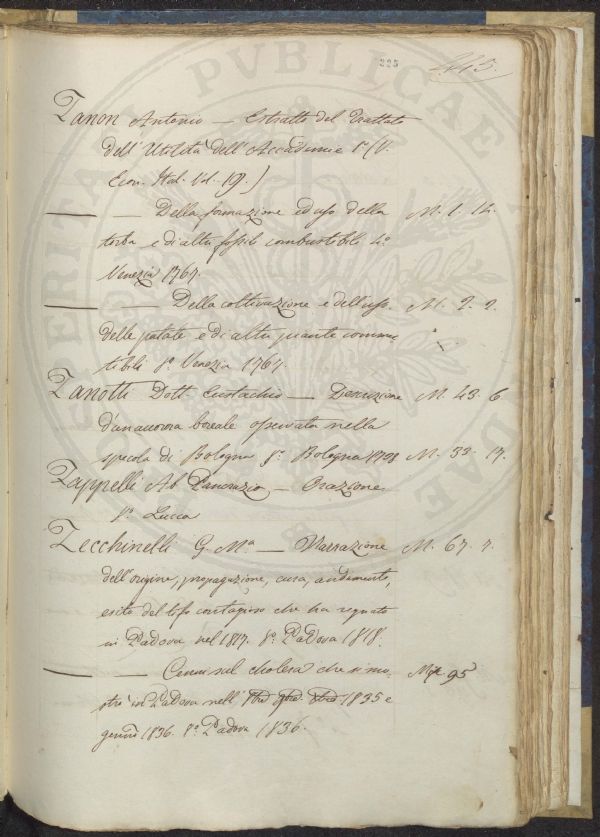 325 443.
Zanon Antonio — Estratto del Trattato
dell' Utilità dell' Accademie 8° (V.
Econ. Ital. Vol. 19.)
— — Della formazione ed uso della M. 1. 14.
torba e di altri fossili combustibili 4°
Venezia 1767.
— — Della coltivazione e dell'uso M. 2. 2.
delle patate e di altre piante comme
tibili 8° Venezia 1767.
Zanotti Dott. Eustachio — Descrizione M. 43. 6
d'un aurora boreale osservata nella
specola di Bologna 8° Bologna M. 33. 17.
Zappelli Ab. Pancrazio — Orazione
8° Lucca
Zecchinelli G. Mª — Narrazione M. 67. 7.
dell'origine, propagazione, cura, andamento,
esito del tifo contagioso che ha regnato
in Padova nel 1817. 8° Padova 1818.
— — Cenni sul cholera che si mo- 95
strò in Padova nell' 1835 e
genn° 1836. 8° Padova 1836.
PVBLICAE